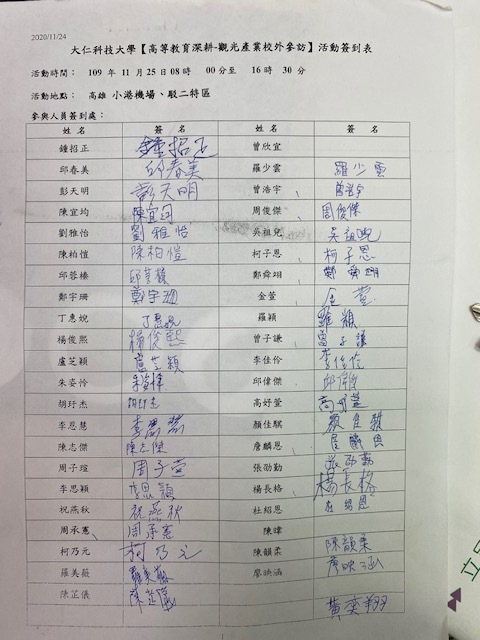 2020/11/24
大仁科技大學【高等教育深耕-觀光產業校外參訪】活動簽到表
活動時間： 109 年 11 月 25 日 08 時 00 分至 16 時 30 分
活動地點： 高雄 小港機場、駁二特區
參與人員簽到處：
姓名 簽名 姓名 簽名
鍾招正 鍾招正 曾欣宜
邱春美 邱春美 羅少雲 羅少雲
彭天明 彭天明 曾浩宇 曾浩宇
陳宜均 陳宜均 周俊傑 周俊傑
劉雅怡 劉雅怡 吳祖兒 吳祖兒
陳柏愷 陳柏愷 柯子恩 柯子恩
邱蓉榛 邱蓉榛 鄭舜翊 鄭舜翊
鄭宇珊 鄭宇珊 金萱 金萱
丁惠婉 丁惠婉 羅穎 羅穎
楊俊熙 楊俊熙 曾子謙 曾子謙
盧芝穎 盧芝穎 李佳伶 李佳伶
朱姿伶 朱姿伶 邱偉傑 邱偉傑
胡玗杰 胡玗杰 高妤萱 高妤萱
李恩慧 李恩慧 顏佳騏 顏佳騏
陳志傑 陳志傑 詹麟恩 詹麟恩
周子瑄 周子萱 張劭勤 張劭勤
李思穎 李思穎 楊長格 楊長格
祝燕秋 祝燕秋 杜紹恩 杜紹恩
周承憲 周承憲 陳暐
柯乃元 柯乃元 陳韻柔 陳韻柔
羅美薇 羅美薇 廖映涵 廖映涵
陳芷儀 陳芷儀 黃奕翔